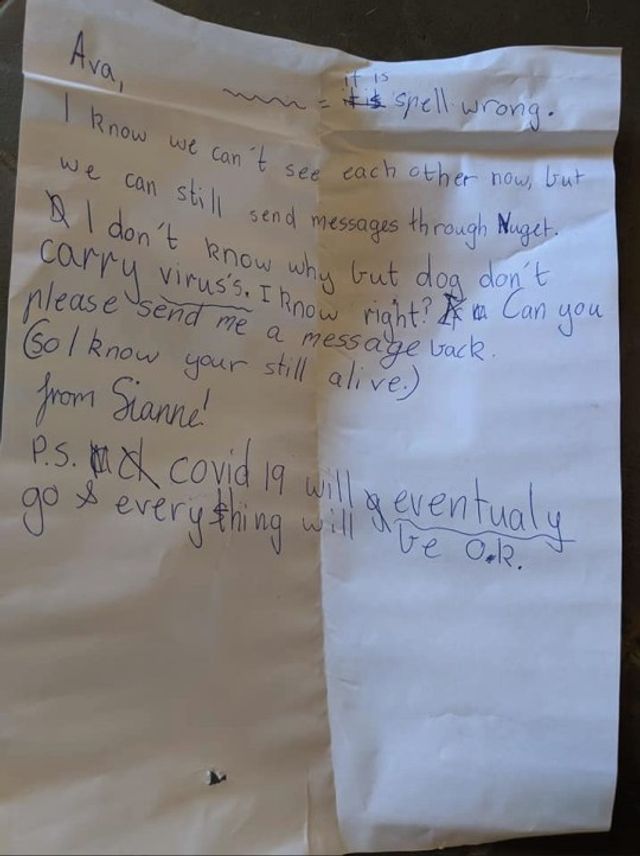 Ava,
~~~~ = it is spell wrong.
I know we can't see each other now, but
we can still send messages through Nuget.
I don't know why but dog don't
carry virus's. I know right? Can you
please send me a message back.
(So I know your still alive.)
from Sianne!
P.S. covid 19 will eventualy
go & everything will be O.k.